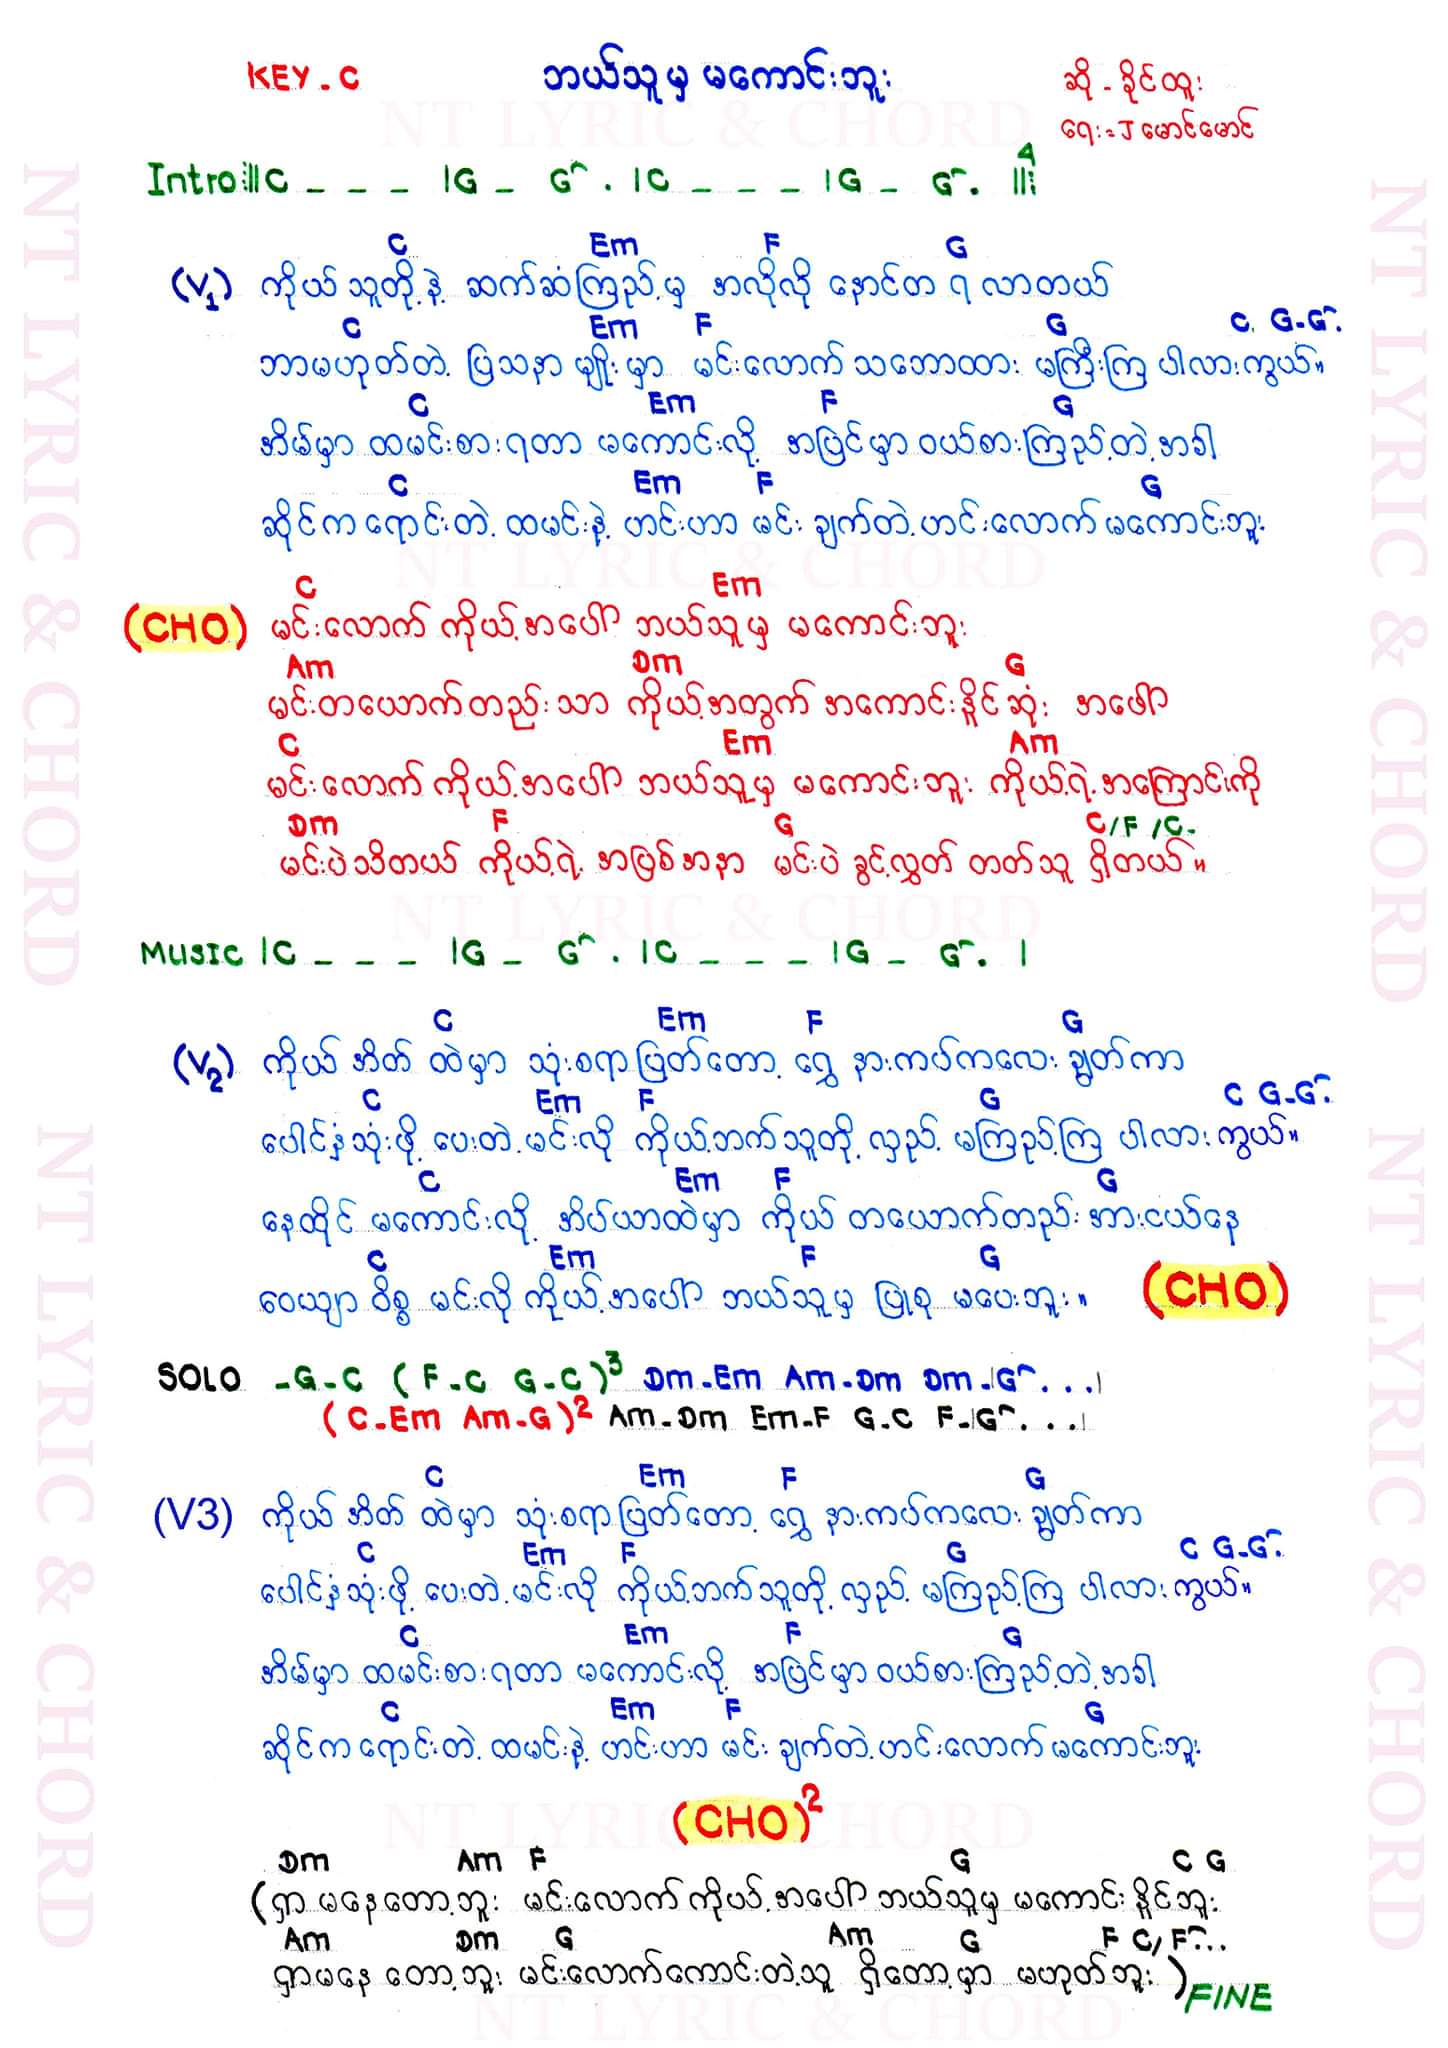 KEY - C ဘယ်သူမှ မကောင်းဘူး ဆို - ခိုင်ထူး
ရေး = J မောင်မောင်
Intro:||C _ _ _ |G _ G^ . |C _ _ _ |G _ G^. ||: 4
C Em F G
(V1) ကိုယ် သူတို့ နဲ့ ဆက်ဆံကြည့်မှ အလိုလို နောင်တ ရ လာတယ်
C Em F G C. G-G^.
ဘာမဟုတ်တဲ့ ပြဿနာ မျိုးမှာ မင်းလောက် သဘောထား မကြီးကြ ပါလားကွယ်။
C Em F G
အိမ်မှာ ထမင်းစားရတာ မကောင်းလို့ အပြင်မှာ ဝယ်စားကြည့်တဲ့အခါ
C Em F G
ဆိုင်က ရောင်းတဲ့ ထမင်းနဲ့ ဟင်းဟာ မင်း ချက်တဲ့ဟင်းလောက် မကောင်းဘူး
C Em
(CHO) မင်းလောက် ကိုယ့်အပေါ် ဘယ်သူမှ မကောင်းဘူး
Am Dm G
မင်းတယောက်တည်းသာ ကိုယ့်အတွက် အကောင်းနိူင်ဆုံး အဖေါ်
C Em Am
မင်းလောက် ကိုယ့်အပေါ် ဘယ်သူမှ မကောင်းဘူး ကိုယ့်ရဲ့အကြောင်းကို
Dm F G C/F /C-
မင်းပဲသိတယ် ကိုယ့်ရဲ့ အပြစ်အနာ မင်းပဲ ခွင့်လွှတ် တတ်သူ ရှိတယ်။
MUSIC |C _ _ _ |G _ G^ . |C _ _ _ |G _ G^. |
C Em F G
(V2) ကိုယ် အိတ် ထဲမှာ သုံးစရာပြတ်တော့ ရွှေ နားကပ်ကလေး ချွတ်ကာ
C Em F G C G-G^.
ပေါင်နှံသုံးဖို့ ပေးတဲ့မင်းလို ကိုယ့်ဘက်သူတို့ လှည့် မကြည့်ကြ ပါလား ကွယ်။
C Em F G
နေထိုင် မကောင်းလို့ အိပ်ယာထဲမှာ ကိုယ် တယောက်တည်း အားငယ်နေ
C Em F G
ဝေယျာ ဝိစ္စ မင်းလို ကိုယ့်အပေါ် ဘယ်သူမှ ပြုစု မပေးဘူး။ (CHO)
SOLO -G-C (F-C G-C)3 Dm-Em Am-Dm Dm-|G^...|
(C-Em Am-G)2 Am-Dm Em-F G-C F-|G^...|
C Em F G
(V3) ကိုယ် အိတ် ထဲမှာ သုံးစရာပြတ်တော့ ရွှေ နားကပ်ကလေး ချွတ်ကာ
C Em F G C G-G^.
ပေါင်နှံသုံးဖို့ ပေးတဲ့မင်းလို ကိုယ့်ဘက်သူတို့ လှည့် မကြည့်ကြ ပါလား ကွယ်။
C Em F G
အိမ်မှာ ထမင်းစားရတာ မကောင်းလို့ အပြင်မှာ ဝယ်စားကြည့်တဲ့အခါ
C Em F G
ဆိုင်က ရောင်းတဲ့ ထမင်းနဲ့ ဟင်းဟာ မင်း ချက်တဲ့ဟင်းလောက် မကောင်းဘူး
(CHO)2
Dm Am F G C G
(ရှာ မနေတော့ဘူး မင်းလောက် ကိုယ့်အပေါ် ဘယ်သူမှ မကောင်း နိူင်ဘူး
Am Dm G Am G F C/ F^...
ရှာမနေ တော့ဘူး မင်းလောက်ကောင်းတဲ့သူ ရှိတော့မှာ မဟုတ်ဘူး ) FINE
NT LYRIC & CHORD
NT LYRIC & CHORD
NT LYRIC & CHORD
NT LYRIC & CHORD
NT LYRIC & CHORD
NT LYRIC & CHORD
NT LYRIC & CHORD
NT LYRIC & CHORD
NT LYRIC & CHORD